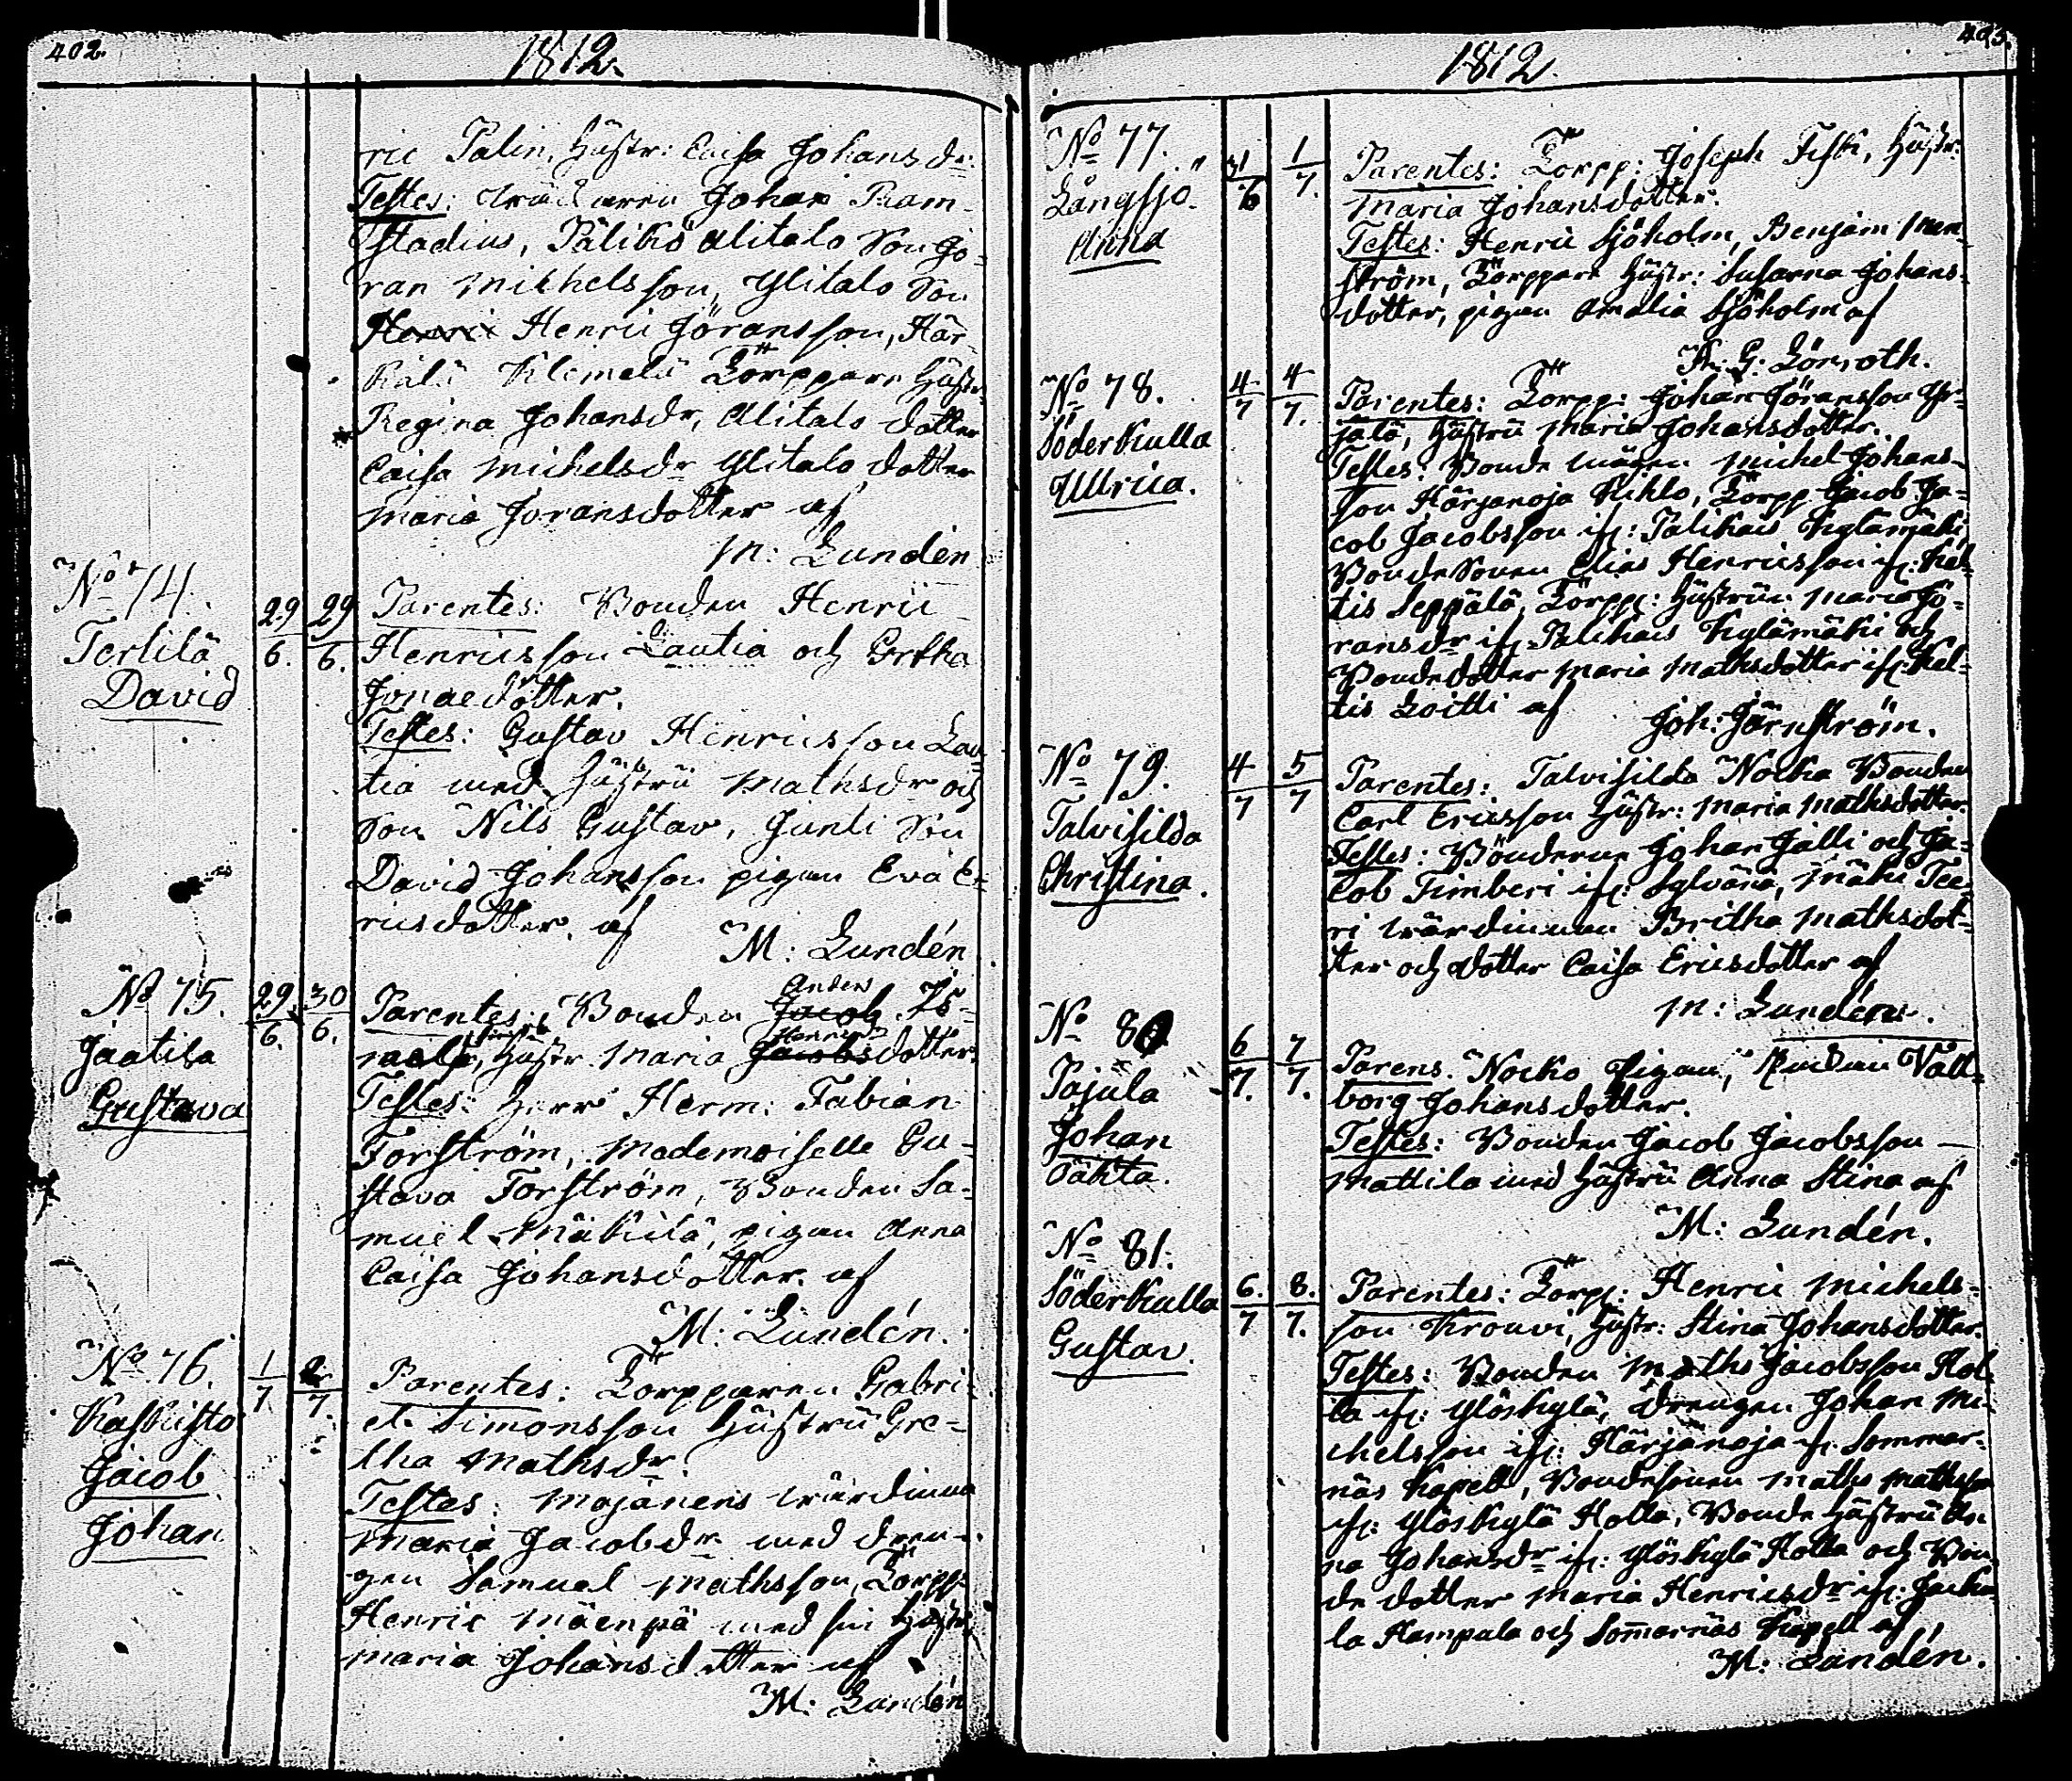 402.
1812.
ric Palin, Hustr: Caisa Johansdr:
Testes: Johan Ram-
stadius, Päliko Alitalo Son Jö-
ran Michelsson, Ylitalo Son
Henric Henric Jöransson, Här-
kälä Klemelä Torppare Hustr:
Regina Johansdr, Alitalo dotter
Caisa Michelsdr Ylitalo dotter
Maria Joransdotter af
M: Lundén
No 74.
Tertilä
David
29/6. 29/6.
Parentes: Bonden Henric
Henricsson Lautia och Gretha
Jonaedotter.
Testes: Gustav Henricsson Lau-
tia med Hustru Mathsdr och
Son Nils Gustav, Junti Son
David Johansson pigan Eva E-
ricsdotter. af
M: Lundén
No 75.
Jaatila
Gustava
29/6. 30/6.
Anders
Parentes: Bonden Jacob
Henrics
Hustr Maria Jacobsdotter.
Testes: Herr Herm: Fabian
Forström, Mademoiselle Gu-
stava Forström, Bonden Sa-
muel Mäkilä, pigan Anna
Caisa Johansdotter. af
M: Lundén.
No 76.
Kaskisto
Jacob
Johan
1/7 2/7.
Parentes: Torpparen Gabri-
el Simonsson Hustru Gre-
tha Mathsdr.
Testes: Majanens wärdinna
Maria Jacobdr med dren-
gen Samuel Mathsson, Torpp:
Henric Mäenpä med sin Hustr:
Maria Johansdotter af
M: Lundén
1812.
No 77.
Långsjö
Anna
31/6 1/7.
Parentes: Torpp: Joseph Fisk, Hustr:
Maria Johansdotter.
Testes: Henric Sjöholm, Benjam
ström, Torppare Hustr: Susanna Johans-
dotter, pigan Amalia Sjöholm af
K: G: Lönroth.
No 78.
Söderkulla
Ullrica.
4/7 4/7.
Parentes: Torpp: Johan Jöransson Yr-
jälä, Hustru Maria Johansdotter.
Testes: Bonde mågen Michel Johans-
son Härjänoja Kihlo, Torpp Jacob Ja-
cob Jacobsson ifr: Palikais Kylämäki
Bondesonen Elias Henricsson ifr: Kel-
tis Seppälä, Torpp: Hustrun Maria Jö-
ransdr ifr Palikais Kylämäki och
Bondedotter Maria Mathsdotter ifr: Kel-
tis Loitti af
Joh: Järnström.
No 79.
Talvisilda
Christina.
4/7 5/7
Parentes: Talvisilda Nocka Bonden
Carl Ericsson Hustr: Maria Mathsdotter.
Testes: Bönderne Johan Jälli och Ja-
cob Timberi ifr: Sylvänä, Mäki Tee-
ri wärdinnan Britha Mathsdot-
ter och dotter Caisa Ericsdotter af
M: Lundén.
No 80
Pajula
Johan
Oäkta.
6/7. 7/7.
Parens. Nocko Pigan, Wall-
borg Johansdotter.
Testes: Bonden Jacob Jacobsson
Mattila med Hustru Anna Stina af
M: Lundén.
No 81.
Söderkulla
Gustav.
6./7 8./7.
Parentes: Torpp: Henric Michels-
son Krouvi, Hustr: Stina Johansdotter.
Testes: Bonden Maths Jacobsson Hol-
la ifr: Ylöskylä, Drengen Johan Mi-
chelsson ifr: Härjänoja ifr Sommar-
näs Kapell, Bondesonen Maths Mathsson
ifr: Ylöskylä Holla, Bonde Hustru An-
na Johansdr ifr: Ylöskylä Holla och Bon-
de dotter Maria Henricsdr ifr: Jacka-
la Hampula och Sommarnäs Kapell af
M: Lundén.